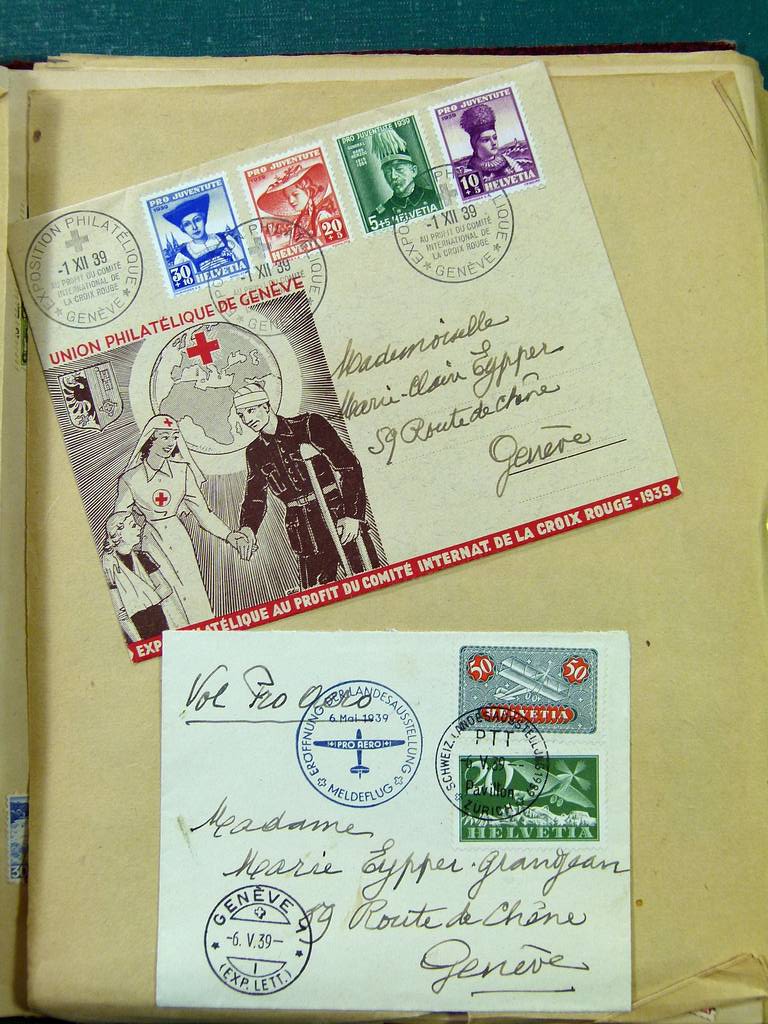 PRO JUVENTUTE
1939
30
+10
HELVETIA
PRO JUVENTUTE
1939
20
+5
HELVETIA
PRO JUVENTUTE 1939
GENERAL
HANS
HERZOG
5+5 HELVETIA
PRO JUVENTUTE
1939
10
+5
HELVETIA
EXPOSITION PHILATÉLIQUE
-1 XII 39
AU PROFIT DU COMITÉ
INTERNATIONAL DE
LA CROIX ROUGE
GENÈVE
-1 XII 39
-1 XII 39
AU PROFIT DU COMITÉ
INTERNATIONAL DE
LA CROIX ROUGE
GENÈVE
UNION PHILATÉLIQUE DE GENÈVE
Mademoiselle
Marie-Claire Eypper
59 Route de Chêne
Genève
LATÉLIQUE AU PROFIT DU COMITÉ INTERNAT. DE LA CROIX ROUGE - 1939
Vol Pro Aero
ERÖFFNUNG DER LANDESAUSSTELLUNG
6. Mai 1939
PRO AERO
MELDEFLUG
50 50
HELVETIA
SCHWEIZ. LANDESAUSSTELLUNG 1939
PTT
-6. V. 39--
Pavillon
ZÜRICH
HELVETIA
Madame
Marie Eypper-Grandjean
59 Route de Chêne
Genève
GENÈVE
-6. V. 39-
1
(EXP. LETT.)